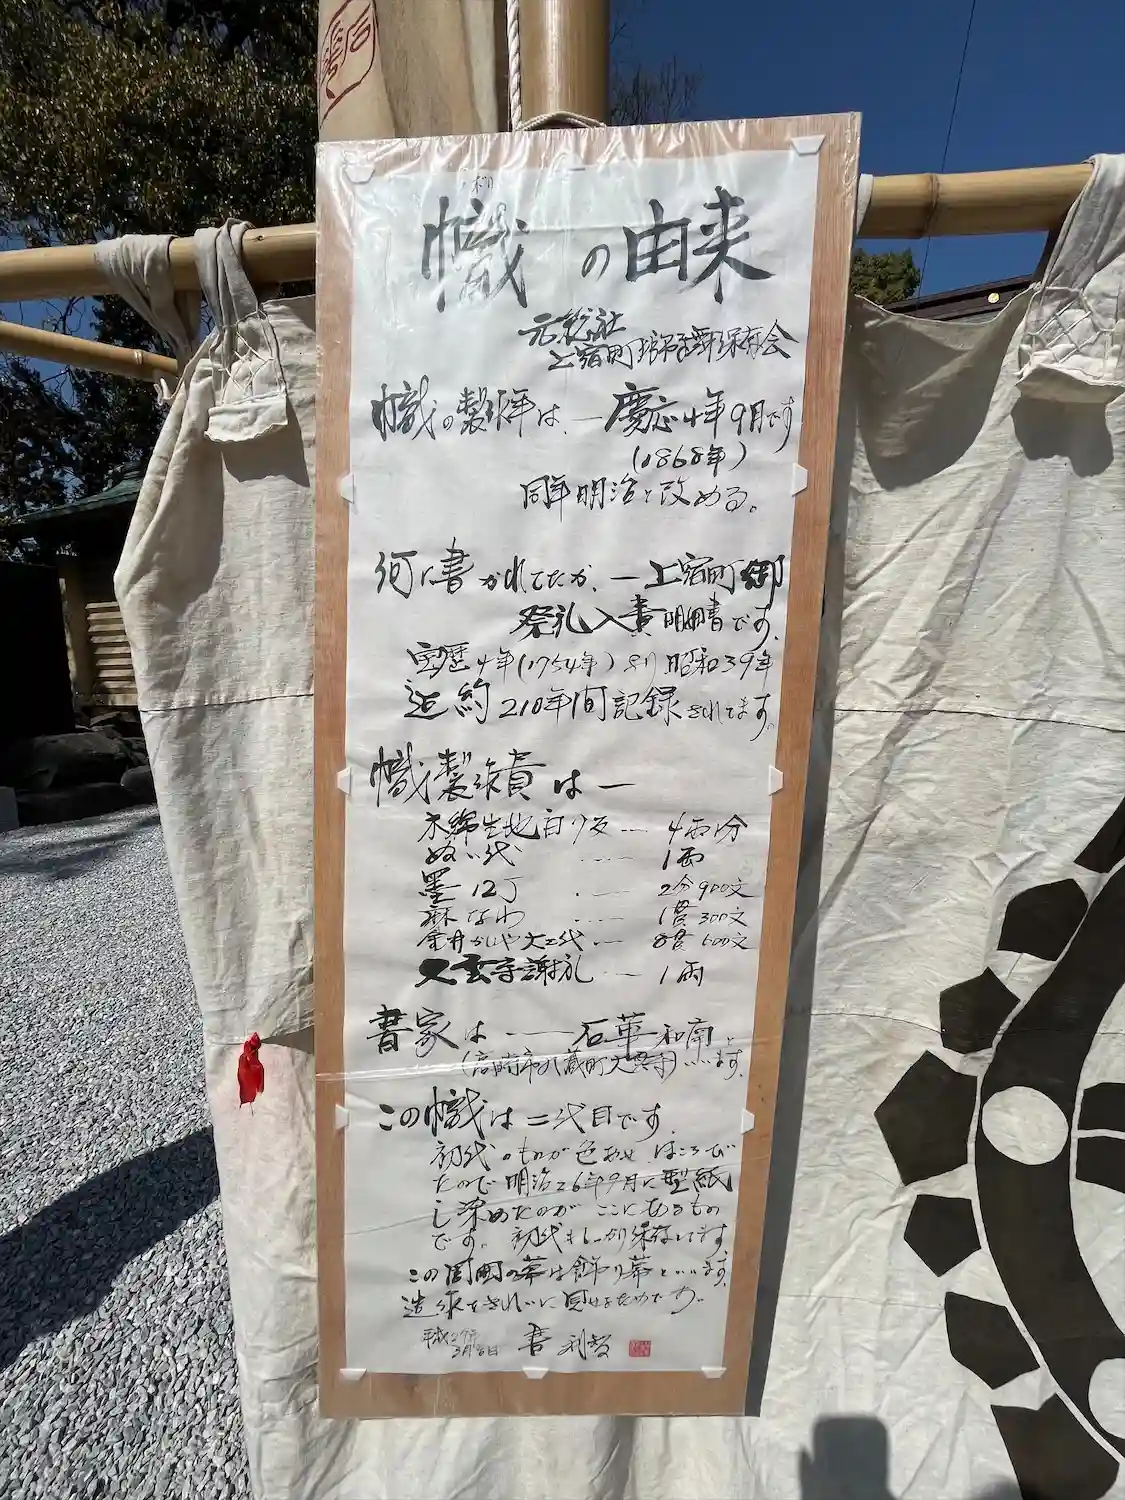 幟の由来
元総社
上宿町獅子舞保存会
幟の製作年は、一慶応4年9月です
(1868年)
同年明治と改める。
何に書かれてたか、一上宿町御
祭礼入費明細書です。
宝暦4年(1754年)より昭和39年
迄約210年間記録されてます。
幟製作費は一
木綿生地白9反 4両1分
ぬい代 1両
墨12丁 2分900文
麻なわ 1貫300文
大工代 8貫600文
大雲寺謝礼 1両
書家は 石華和南と
(高崎市九蔵町大雲寺)います。
この幟は二代目です。
初代のものが色あせ、ほころび
たので明治26年9月に型紙
し染めたのがここにあるもの
です。初代もしっかり保存してます。
この周囲の幕は飾り幕といいます。
造作をきれいに見せるためです。
平成27年
3月8日 書